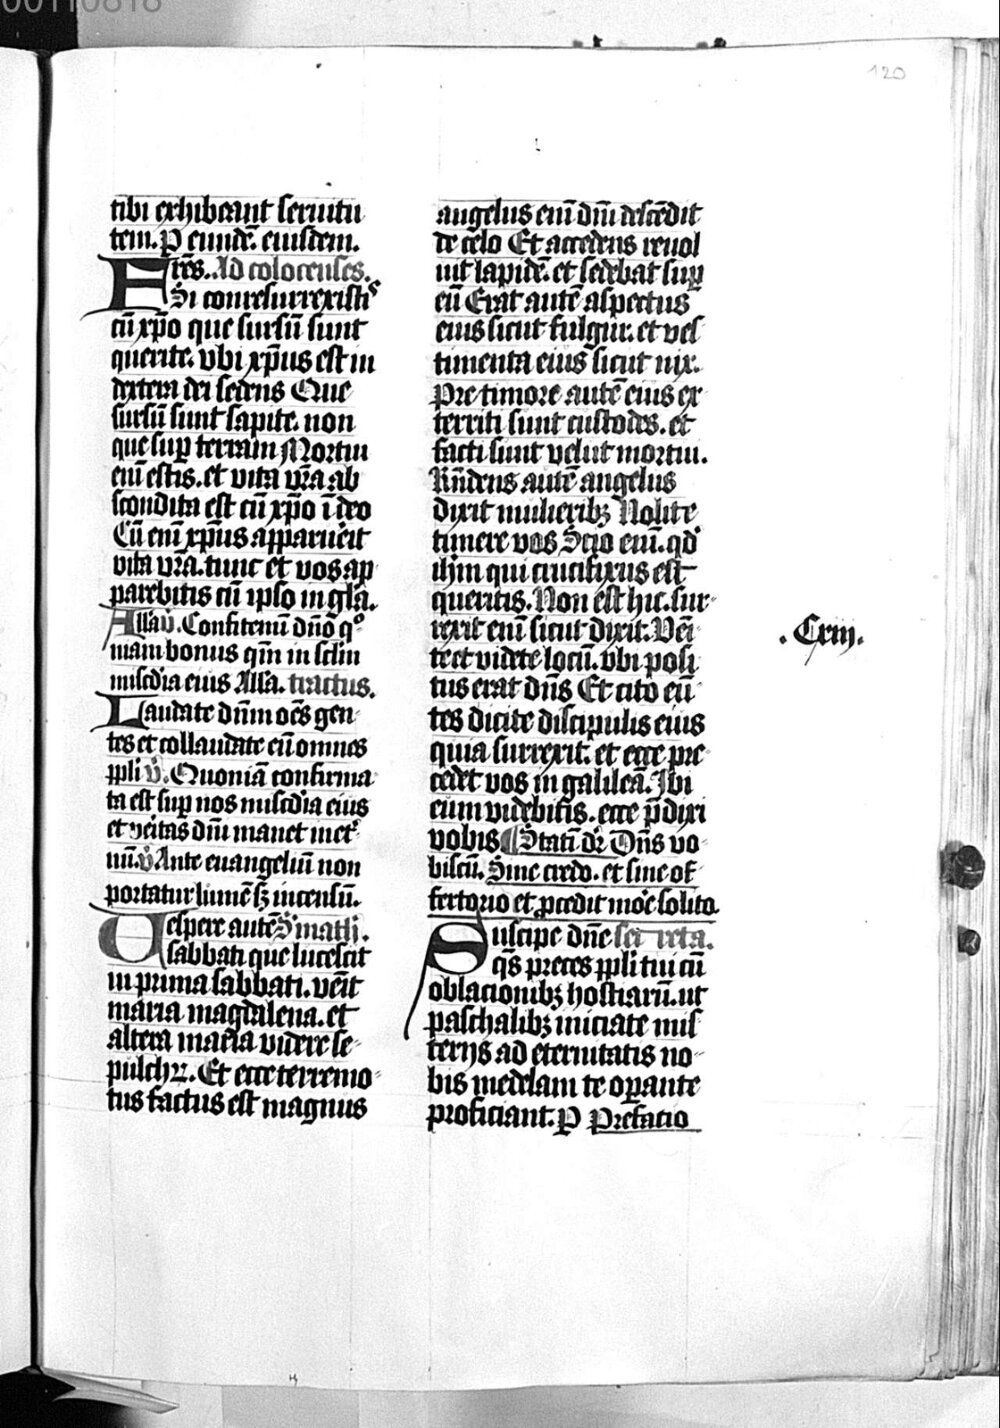 00110818
120
tibi exhibeant seruitu
tem. P eundē. eiusdem.
Frēs. Ad colocenses.
Si conresurrexistis
cū xp̄o que sursū sunt
querite. vbi xp̄us est in
dextera dei sedens Que
sursū sunt sapite. non
que suꝑ terram Mortui
eni᷒ estis. et vita vr̄a ab
scondita est cū xp̄o ī deo
Cū eni᷒ xp̄us apparuẻit
vita vr̄a. tunc et vos ap
parebitis cū ipso in gl̄a.
Alla℣. Confitemi᷒ dn̄o qͦ
niam bonus qm̄ in sclm̄
miscd̓ia eius All̄a. tractus.
Laudate dn̄m oēs gen
tes et collaudate eū omnes
ppl̓i ℣. Quoniā confirma
ta est suꝑ nos miscd̓ia eius
et vẻitas dn̄i manet inet̓
nū. ℣ Ante euangeliū non
portatur lumē sꝫ incensū.
Vespere autē S. math̓.
sabbati que lucescit
in prima sabbati. vēit
maria magdalena. et
altera maria videre se
pulchꝝ. Et ecce terremo
tus factus est magnus
angelus eni᷒ dn̄i descēdit
de celo Et accedens reuol
uit lapidē. et sedebat suꝑ
eū Erat autē aspectus
eius sicut fulgur. et ves
timenta eius sicut nix.
Pre timore autē eius ex
territi sunt custodes. et
facti sunt velut mortui.
Rn̄dens autē angelus
dixit mulieribꝫ Nolite
timere vos Scio eni᷒. qd̓
ihm̄ qui crucifixus est
queritis. Non est hic. sur
rexit eni᷒ sicut dixit. Vēi
te et videte locū. vbi posi
tus erat dn̄s Et cito eū
tes dicite discipulis eius
quia surrexit. et ecce pre
cedet vos in galileā. Ibi
eum videbitis. ecce p̄dixi
vobis ¶ Statī dr̄ Dn̄s vo
biscū. Sine credo. et sine of
fertorio et ꝓcedit mōe solito.
Suscipe dn̄e secreta.
qs̄ preces ppl̓i tui cū
oblacionibꝫ hostiarū. ut
paschalibꝫ iniciate mis
terijs ad eternitatis no
bis medelam te oꝑante
proficiant. P Prefacio
. Cxiij.